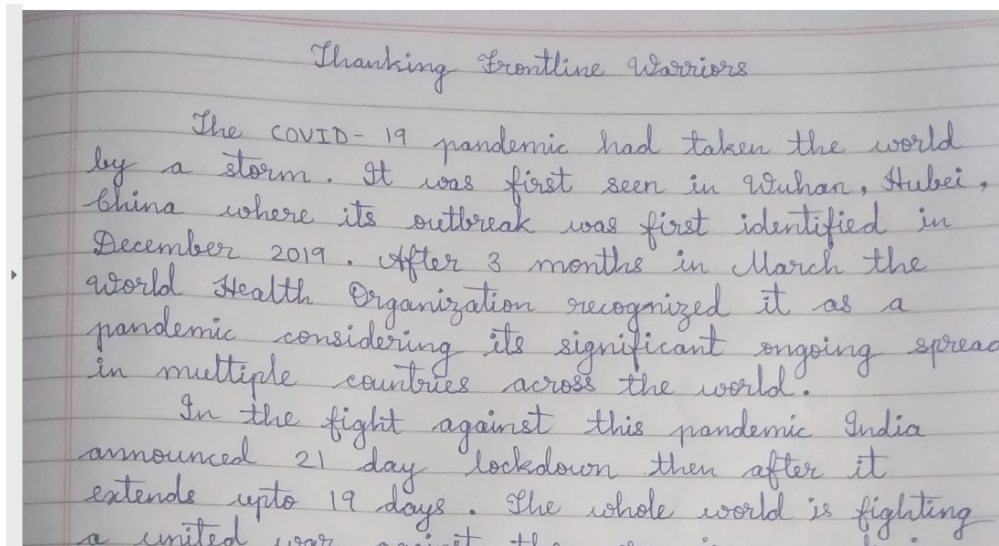 Thanking Frontline Warriors
The COVID-19 pandemic had taken the world
by a storm. It was first seen in Wuhan, Hubei,
China where its outbreak was first identified in
December 2019. After 3 months in March the
World Health Organization recognized it as a
pandemic considering its significant ongoing spread
in multiple countries across the world.
In the fight against this pandemic India
announced 21 day lockdown then after it
extends upto 19 days. The whole world is fighting
a united war against the